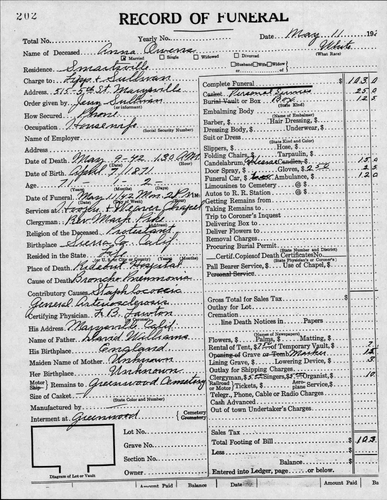 202
RECORD OF FUNERAL
Total No. Yearly No. May 11, 19
Name of Deceased Anna Owens White
Married Single Widowed Divorced (What Race)
Residence Smartsville Husband Wife Widow
Charge to Lipp & Sullivan
Address 315-5th St. Marysville
Order given by Jerry Sullivan
How Secured Phone
Occupation Housewife
(Social Security Number)
Name of Employer
Address
Date of Death May 9-42 1:30 AM
Date of Birth April 7, 1871
Age 71 1 2
Date of Funeral May 11/42 Mon 2 P.M.
Services at Hooper & Weaver Chapel
Clergyman Rev. Mark
Religion of the Deceased Protestant
Birthplace Sierra Co. Calif.
Resided in the State
Place of Death Rideout Hospital
Cause of Death Broncho Pneumonia
Contributory Causes Staphlococcic
General Arteriosclerosis
Certifying Physician
His Address Marysville Calif.
Name of Father David Williams
His Birthplace England
Maiden Name of Mother Unknown
Her Birthplace Unknown
Motor Ship Remains to Greenwood Cemetery
Size of Casket
(State Color and Number)
Manufactured by
Interment at Greenwood Cemetery Crematory
Lot No.
Grave No.
Section No.
Owner
Diagram of Lot or Vault
Complete Funeral $ 103 0
Casket Personal Service $ 25 0
Burial Vault or Box Box $ 12 5
(State Kind)
Embalming Body $
(Name of Embalmer)
Barber, $ Hair Dressing, $
Dressing Body, $ Underwear, $
Suit or Dress $
(State Kind)
Slippers, $ Hose, $
Folding Chairs, $ Tarpaulin, $
Candelabrum, $ 15 0
Door Spray, $ Gloves, $ 2 5
Funeral Car, $ Ambulance, $ 12 0
Limousines to Cemetery @ $
Autos to R. R. Station @ $
Getting Remains from $
Taking Remains to $
Trip to Coroner's Inquest $
Delivering Box to $
Deliver Flowers to $
Removal Charges $
Procuring Burial Permit $
(State Number and District)
Certif. Copies of Death Certificates No. $
Pall Bearer Service, $ Use of Chapel, $
Personal Service $
Gross Total for Sales Tax $
Outlay for Lot $
Cremation $
line Death Notices in Papers $
(Names of Newspapers)
Flowers, $ Palms, $ Matting, $
Rental of Tent, $ Temporary Vault, $ 7
Opening of Grave or Tent Marker $ 12
Lining Grave, $ Lowering Device, $ 5
Outlay for Shipping Charges $
Clergyman, $ Singers, $ Organist, $ 10
Railroad Motor Tickets, $ Aeroplane Service, $
Teleg., Phone, Cable or Radio Charges $
Cash Advanced $
Out of town Undertaker's Charges $
Sales Tax $
Total Footing of Bill $ 103
Less $
Balance $
Entered into Ledger, page or below.